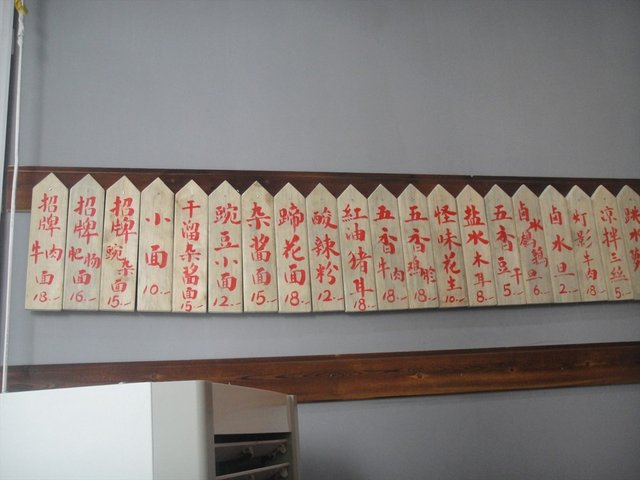 招牌牛肉面 18..
招牌肥肠面 16..
招牌豌杂面 15..
小面 10..
干溜杂酱面 15
豌豆小面 12..
杂酱面 15..
蹄花面 18..
酸辣粉 12..
红油猪耳 18
五香牛肉 18
五香鸡胗 18..
怪味花生 10..
盐水木耳 8..
五香豆干 5
卤水鹌鹑旦 6..
卤水旦 2..
灯影牛肉 18
凉拌三丝 5..